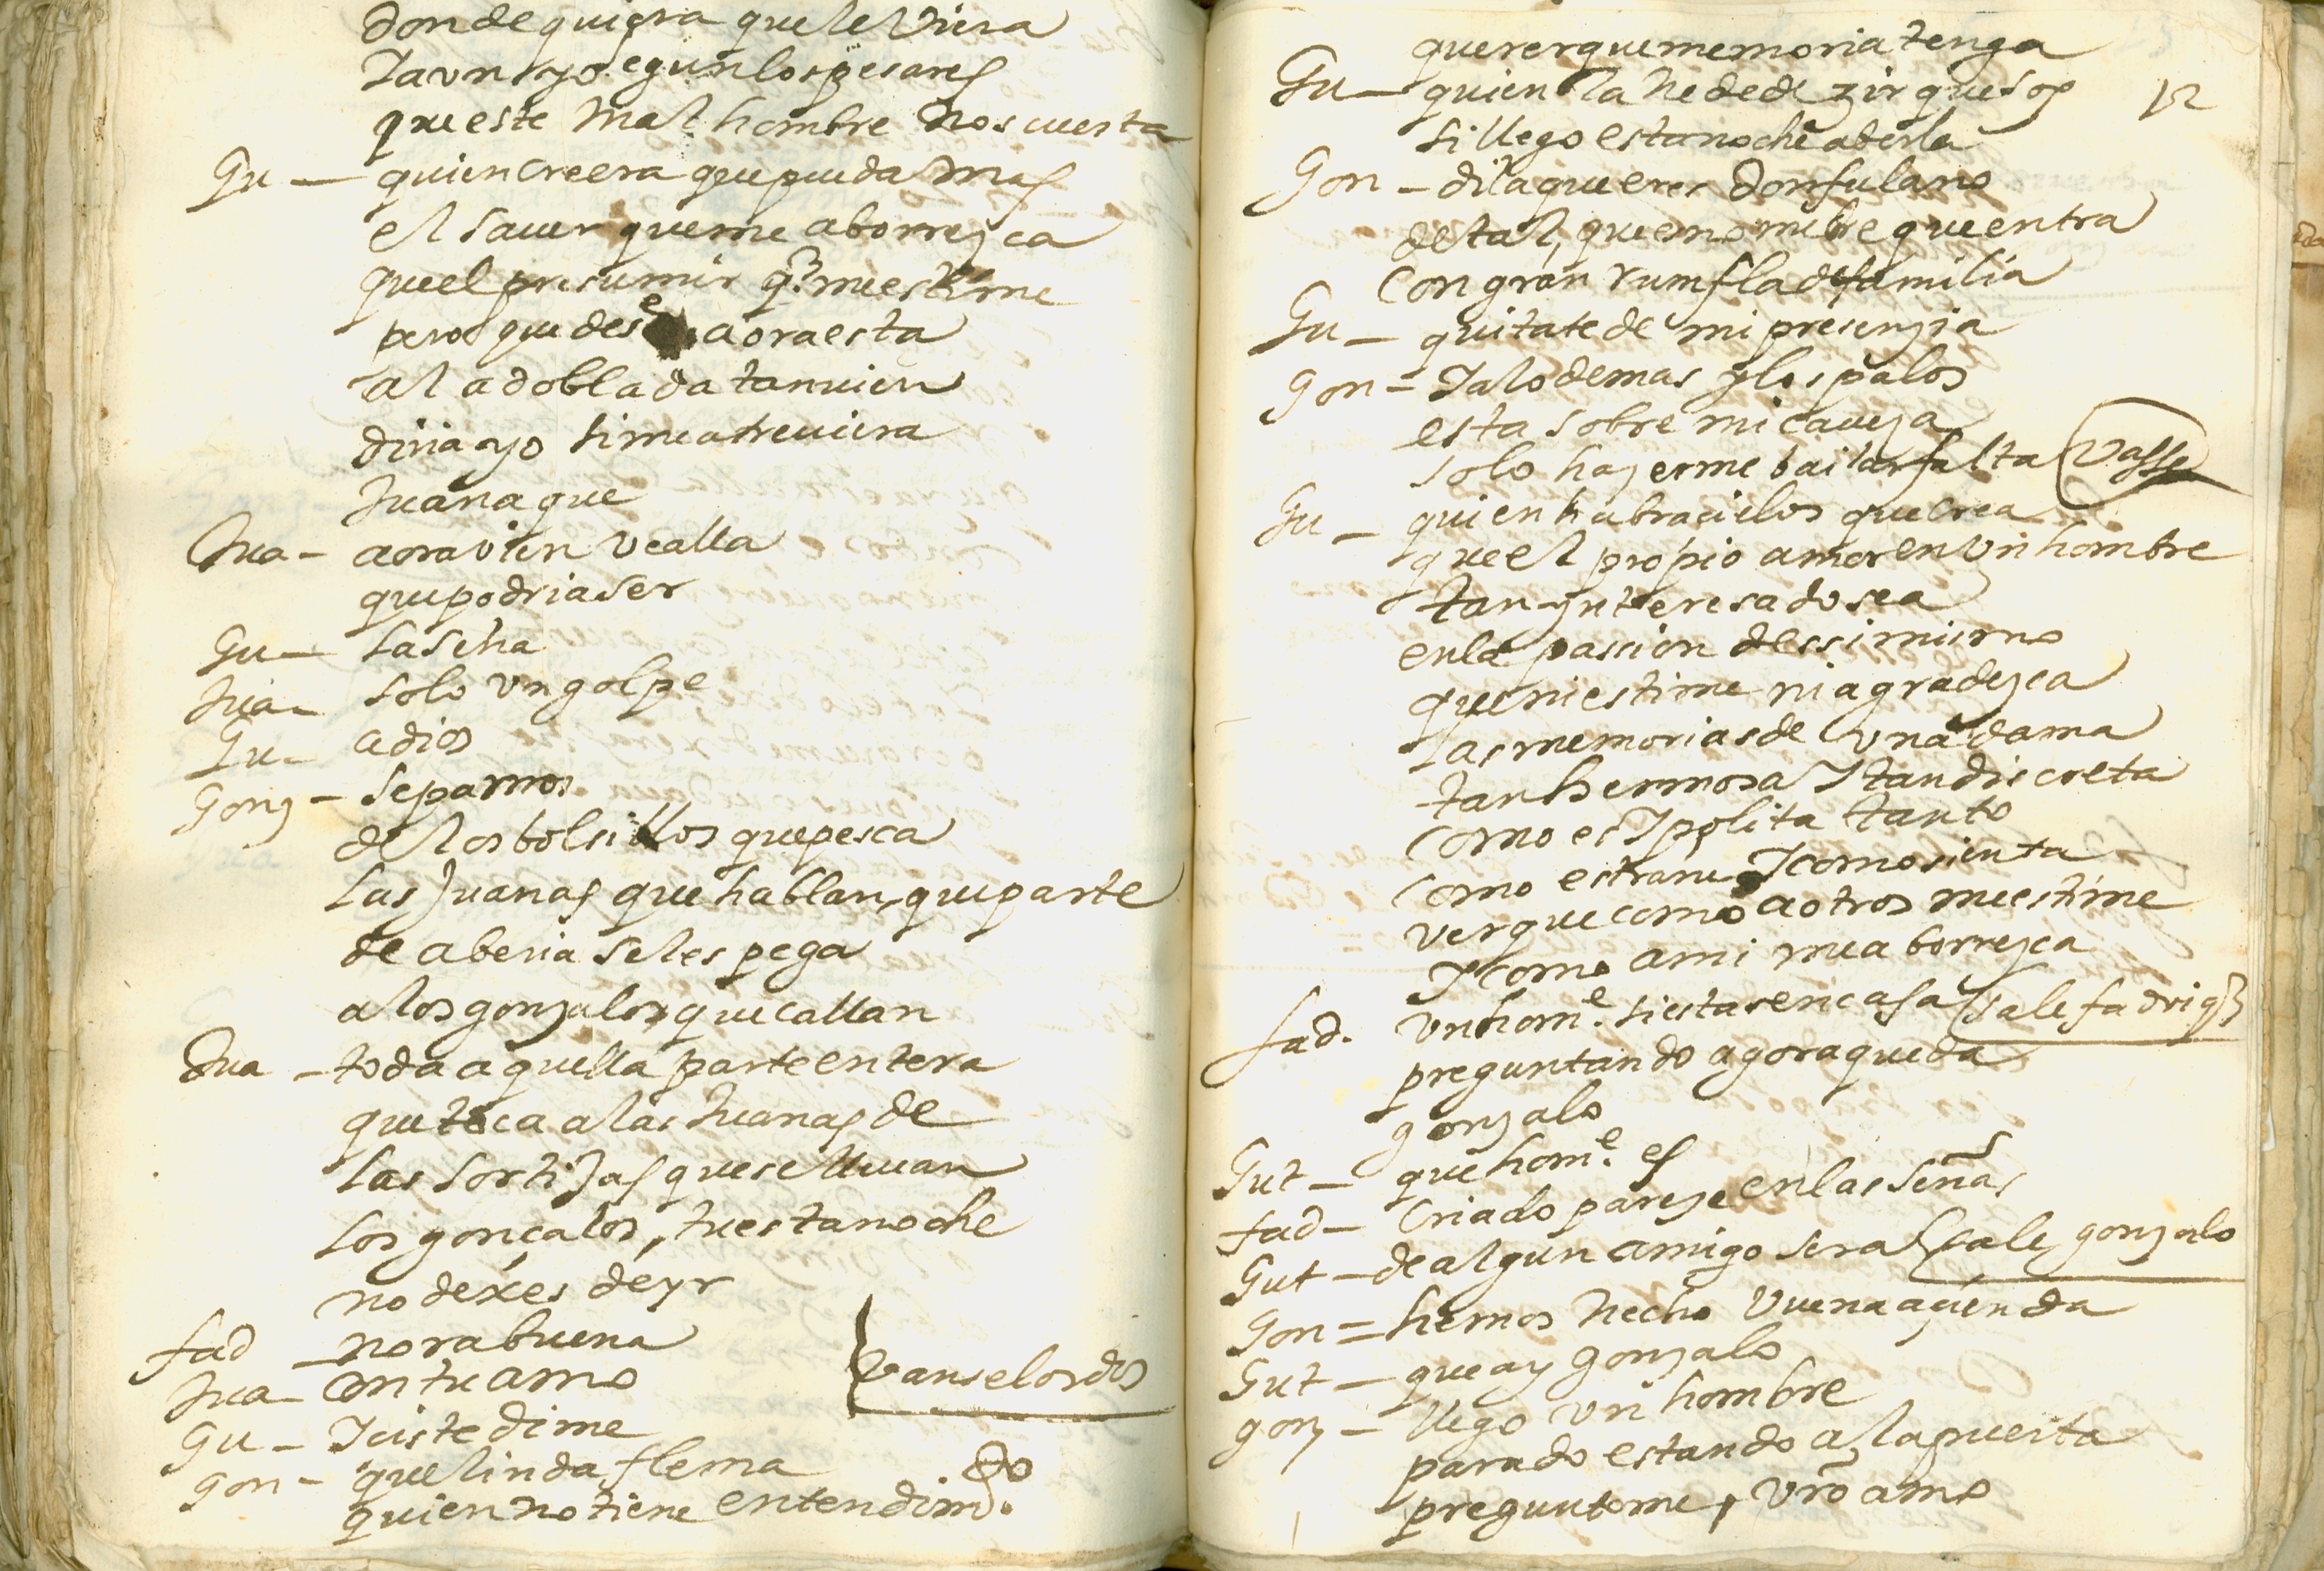 donde quiera que le viera
Y aun yo segun los pesares
que este mal hombre nos cuesta
Gu — quien creera que pueda mas
el sauer que me aborrezca
que el presumir q̃ me estime
pero que des aora esta
a la doblada tanuien
diria yo si me atreuiera
Juana que
Jua — aora vien vealla
que podria ser
Gu — la seña
Jua — solo un golpe
Gu — adios
Gonz — sepamos
de los bolsillos que pesca
las Juanas que hablan, que parte
de aberia se les pega
a los gonzalos que callan
Jua — toda aquella parte entera
que toca a las Juanas de
las sortijas que se lleuan
los gonçalos, tu esta noche
no dexes de yr
fad — norabuena
Jua — con tu amo (vanse los dos
Gu — Y uiste dime
gon — que linda flema
quien no tiene entendimᵗᵒ.
querer que memoria tenga
Gu — quien la he de dezir que soy 12
si llego esta noche a berla
Gon — dila que eres Don fulano
de tal, que es nombre que entra
con gran rumfla de familia
Gu — quitate de mi presenzia
gon — Y a lo demas y los palos
esta sobre mi caueza
solo hazerme bailar falta (vasse
Gu — quien habra cielos que crea
que el propio amor en un hombre
tan ynteresado sea
en la passion de ssi mismo
que ni estime ni agradezca
las memorias de una dama
tan hermosa Y tan discreta
como es Ypolita tanto
como estrañe Y como sienta
ver que como a otros me estime
Y como a mi me aborrezca
fad. un homᵉ. si estas en casa (sale fadriq̃
preguntando agora queda
gonzalo
Gut — que homᵉ. es
fad — criado pareze en las señas
Gut — de algun amigo sera (sale gonzalo
Gon = hemos hecho vuena açienda
Gut — que ay gonzalo
gonz — llego un hombre
parado estando a la puerta
preguntome, vrõ amo